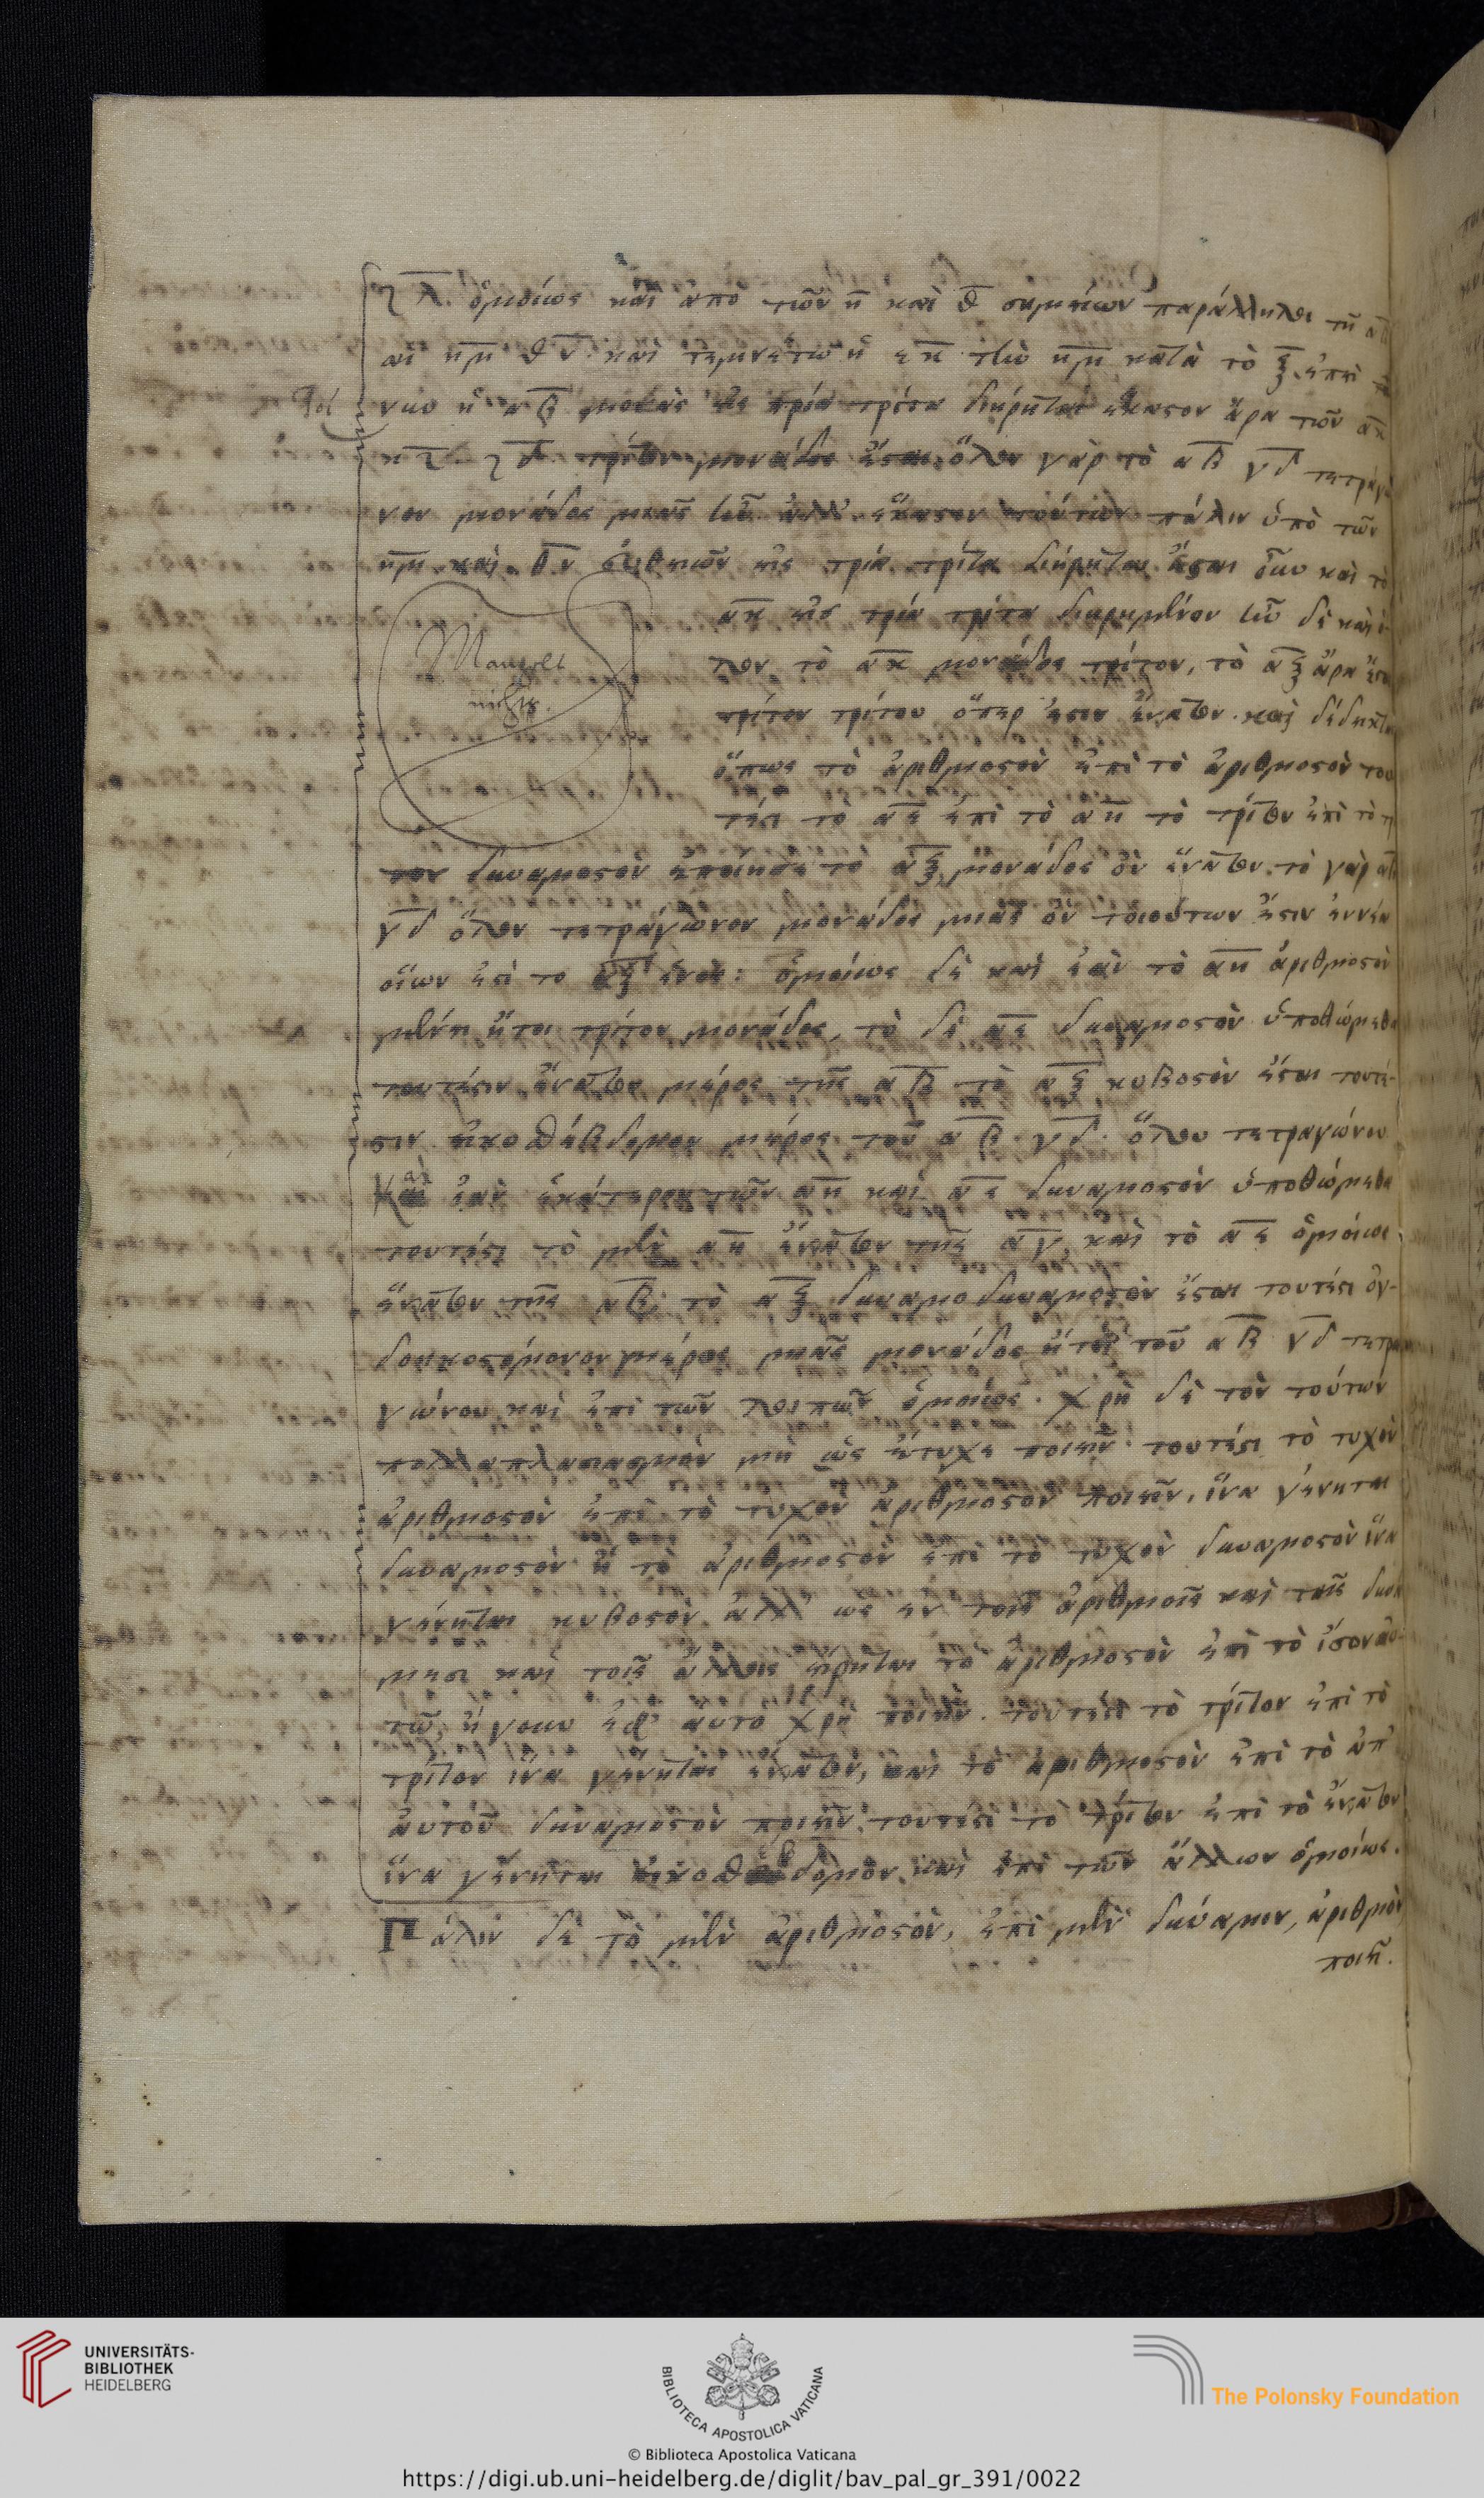 ζλ. ὁμοίως καὶ ἀπὸ τῶν η καὶ θ σημείων παράλληλοι τῆ
αἱ ημ θν. καὶ τεμνέτω ἡ εκ τὴν ημ κατὰ τὸ ξ. ἐπεὶ
ἡ αβ μονὰς εἰς τρία τρίτα διήρηται ἕκαστον ἄρα τῶν ακ
τρίτον μονάδος ἔσται. ὅλον γὰρ τὸ αβ γδ τετράγω
νον μονάδος μιᾶς ἦν ἀλλ' ἕκαστον τούτων πάλιν ὑπὸ τῶν
ημ καὶ θν εὐθειῶν εἰς τρία τρίτα διήρηται ἔσται καὶ τὸ
ακ εἰς τρία τρίτα διηρημένον ἦν δὲ καὶ
Manvolt
τὸ ακ μονάδος τρίτον, τὸ αξ ἄρα
nichts.
τρίτον τρίτου ὅπερ ἐστὶν ἔννατον. καὶ δέδεικται
ὅπως τὸ ἀριθμοστὸν ἐπὶ τὸ ἀριθμοστὸν του
τέστι τὸ αε ἐπὶ τὸ αη τὸ τρίτον ἐπὶ τὸ
τον δυναμοστὸν ἐποίησε τὸ αξ μονάδος ὂν ἔννατον. τὸ γὰρ αβ
γδ ὅλον τετράγωνον μονάδος μιᾶς ὂν τοιούτων ἐστὶν ἐννέα
οἵων ἐστὶ το αξ ἑνός: ὁμοίως δὲ καὶ ἐὰν τὸ αη ἀριθμοστὸν
μένη ἤτοι τρίτον μονάδος, τὸ δὲ αε δυναμοστὸν ὑποθώμεθα
τουτέστιν ἔννατον μέρος τῆς αβ τὸ αξ κυβοστὸν ἔσται τουτέ-
στιν εἰκοσθέβδομον μέρος τοῦ αβ γδ. ὅλου τετραγώνου
Καὶ ἐὰν ἑκάτερον τῶν αη καὶ αε δυναμοστὸν ὑποθώμεθα
τουτέστι τὸ μὲν αη ἔννατον τῆς αγ, καὶ τὸ αε ὁμοίως
ἔννατον τῆς αβ, τὸ αξ δυναμοδυναμοστὸν ἔσται τουτέστι ὀγ-
δοηκοστόμονον μέρος μιᾶς μονάδος ἤτοι τοῦ αβ γδ τετρα
γώνου καὶ ἐπὶ τῶν λοιπῶν ὁμοίως. χρὴ δὲ τὸν τούτων
πολλαπλασιασμὸν μὴ ὡς ἔτυχε ποιεῖν. τουτέστι τὸ τυχὸν
ἀριθμοστὸν ἐπὶ τὸ τυχὸν ἀριθμοστὸν ποιεῖν, ἵνα γένηται
δυναμοστὸν ἢ τὸ ἀριθμοστὸν ἐπὶ τὸ τυχὸν δυναμοστὸν ἵνα
γένηται κυβοστὸν ἀλλ' ὡς ἐν τοῖς ἀριθμοῖς καὶ ταῖς δυνά
μεσι καὶ τοῖς ἄλλοις εἴρηται τὸ ἀριθμοστὸν ἐπὶ τὸ ἴσον αὐ-
τῶ ἤγουν ἐφ' αὑτὸ χρὴ ποιεῖν. τουτέστι τὸ τρίτον ἐπὶ τὸ
τρίτον ἵνα γένηται ἔννατον, καὶ τὸ ἀριθμοστὸν ἐπὶ τὸ ἀπ'
αὐτοῦ δυναμοστὸν ποιεῖν. τουτέστι τὸ τρίτον ἐπὶ τὸ ἔννατον
ἵνα γένηται εἰκοσθέβδομον. καὶ ἐπὶ τῶν ἄλλων ὁμοίως.
Πάλιν δὲ τὸ μὲν ἀριθμοστὸν, ἐπὶ μὲν δύναμιν, ἀριθμὸν
ποιεῖ.
UNIVERSITÄTS-
BIBLIOTHEK
HEIDELBERG
BIBLIOTECA APOSTOLICA VATICANA
The Polonsky Foundation
© Biblioteca Apostolica Vaticana
https://digi.ub.uni-heidelberg.de/diglit/bav_pal_gr_391/0022